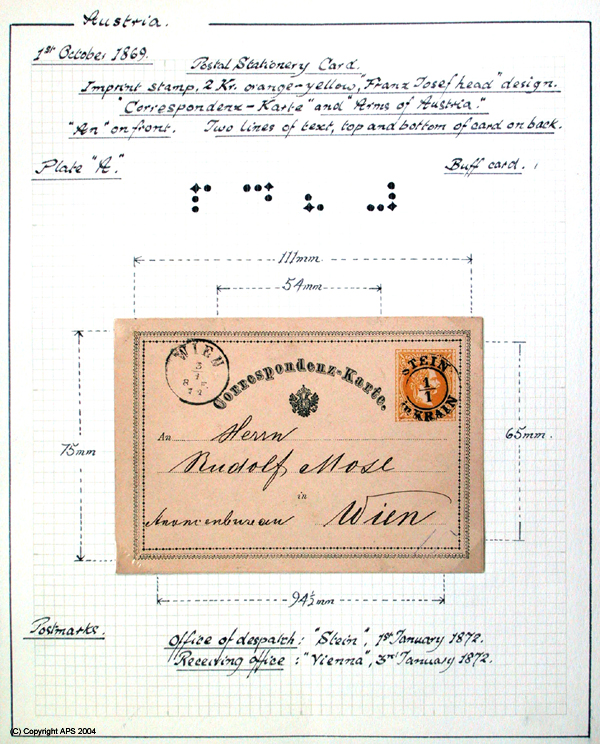 Austria.
1st October 1869.
Postal Stationery Card.
Imprint stamp, 2 Kr. orange-yellow, "Franz Josef head" design.
"Correspondenz-Karte" and "Arms of Austria."
"An" on front. Two lines of text, top and bottom of card on back.
Plate "A."
Buff card.
111mm
54mm
WIEN
3
1
72
Correspondenz-Karte.
STEIN
1
1
in KRAIN
75mm
65mm
An Herrn
Rudolf Mose
in
Annoncenbureau Wien
94½mm
Postmarks.
Office of despatch: "Stein", 1st January 1872.
Receiving office: "Vienna", 3rd January 1872.
(C) Copyright APS 2004